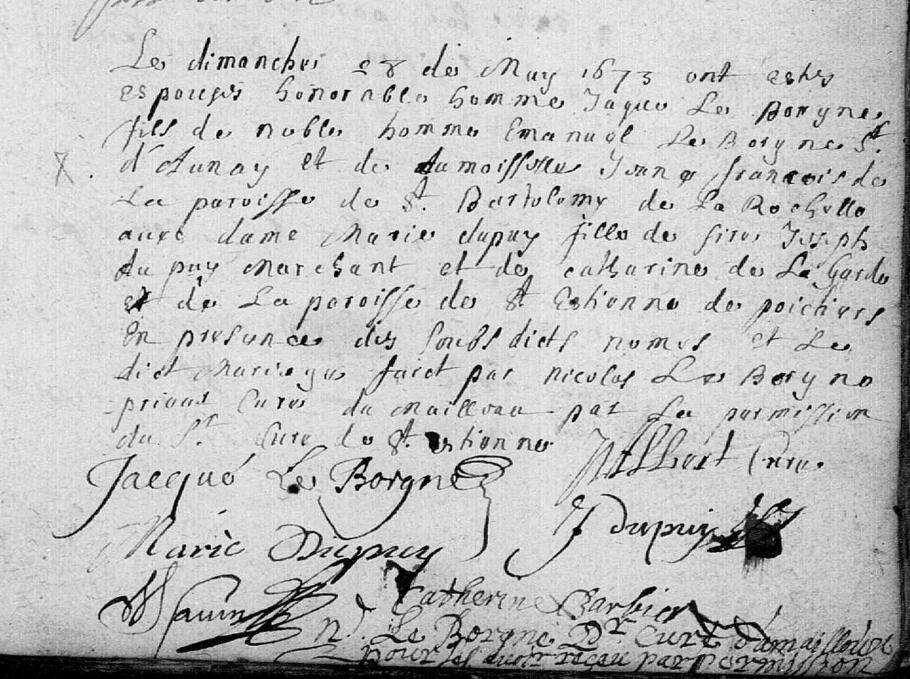 Le dimanche 28 de May 1673 ont estes
espouses honorable homme Jaque Le Borgne
fils de noble homme Emanuel Le Borgne Sr.
d'Aunay et de damoisselle Janne francois de
La paroisse de St. Bartolomy de La Rochelle
avec dame Marie dupuy fille de sire Joseph
du puy Marchant et de catharine de La garde
et de La paroisse de St Estienne de poictiers
En presence des soubs dicts nomes et Le
dict Mariage faict par nicolas Le Borgne
prieur Cure du Mailleau par La permission
du Sr. Cure de St. estienne
Jacque Le Borgne Cure.
Marie Dupuy J dupuy
Catherine Barbier
N. Le Borgne Pr Curé d'amailloux
pour les avoir receu par permission